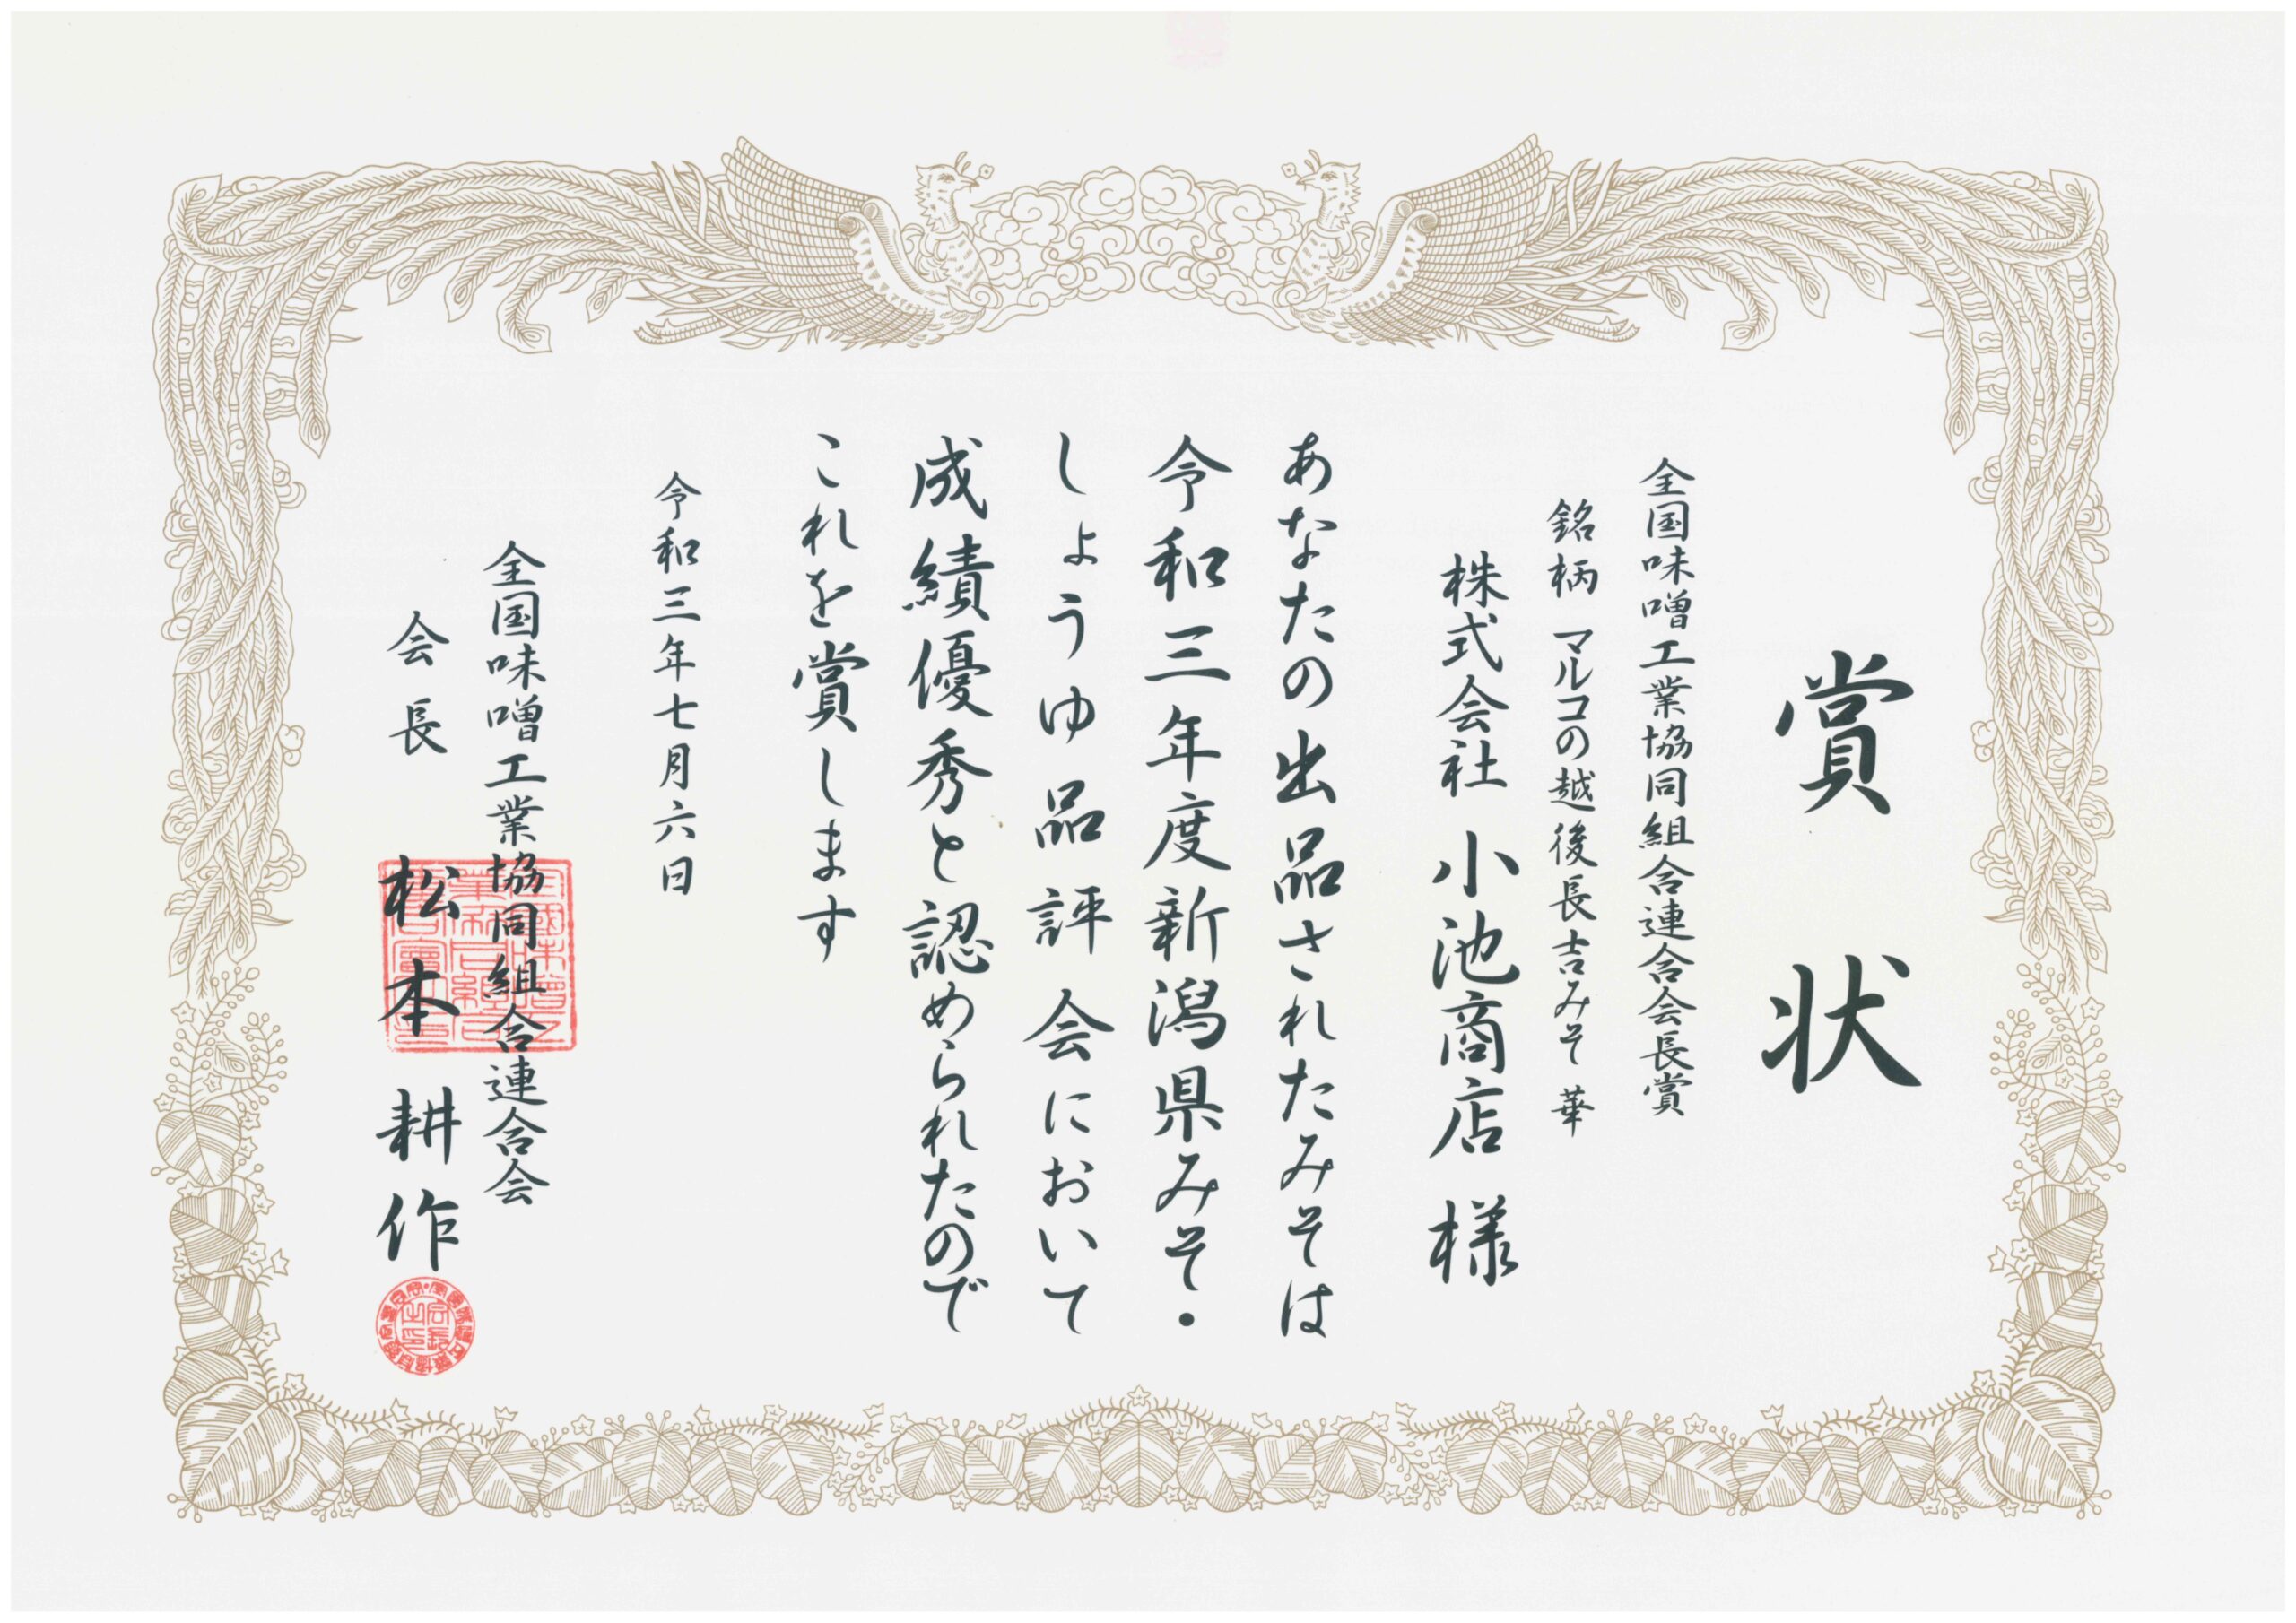 賞状
全国味噌工業協同組合連合会長賞
銘柄 マルコの越後長吉みそ 華
株式会社 小池商店 様
あなたの出品されたみそは
令和三年度新潟県みそ・
しょうゆ品評会において
成績優秀と認められたので
これを賞します
令和三年七月六日
全国味噌工業協同組合連合会
会長 松本耕作